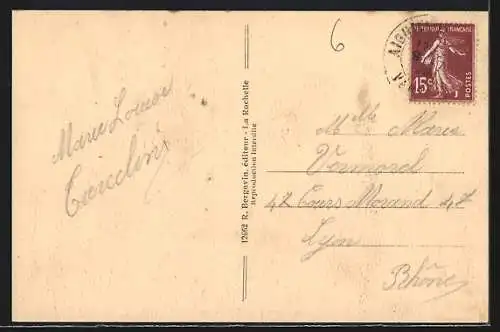 6
AIGU
REPUBLIQUE FRANÇAISE
15c
POSTES
Marie Louise
12662 R. Bergevin, éditeur - La Rochelle
Reproduction Interdite
Mlle Marie
Vermorel
47 Cours Morand 47
Lyon
Rhône